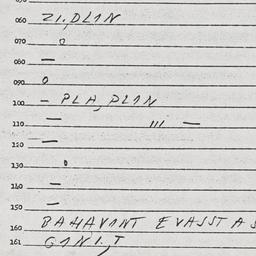 060 ZI,DLIN
070 o
080 —
090 o
100 — PLA,DLIN
110 — III —
120 —
130 o
140 —
150 —
160 BAHAVANT EVASSTAS
161 GANI,T